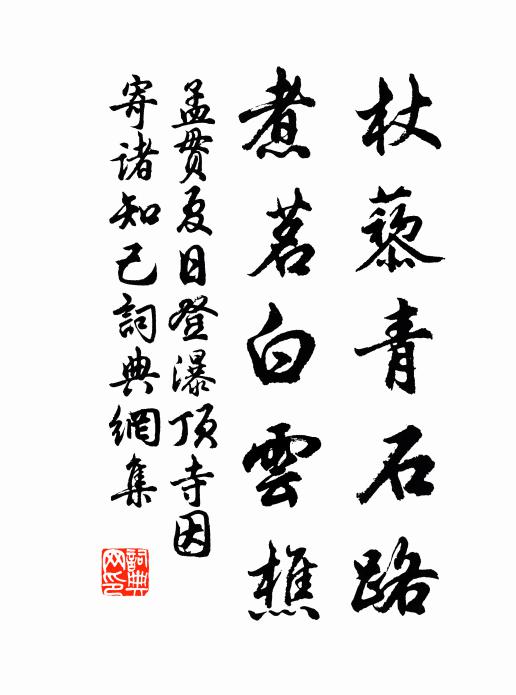 杖藜青石路
煮茗白雲樵
孟貫夏日登瀑頂寺因
寄諸知己詞典網集
詞典網印